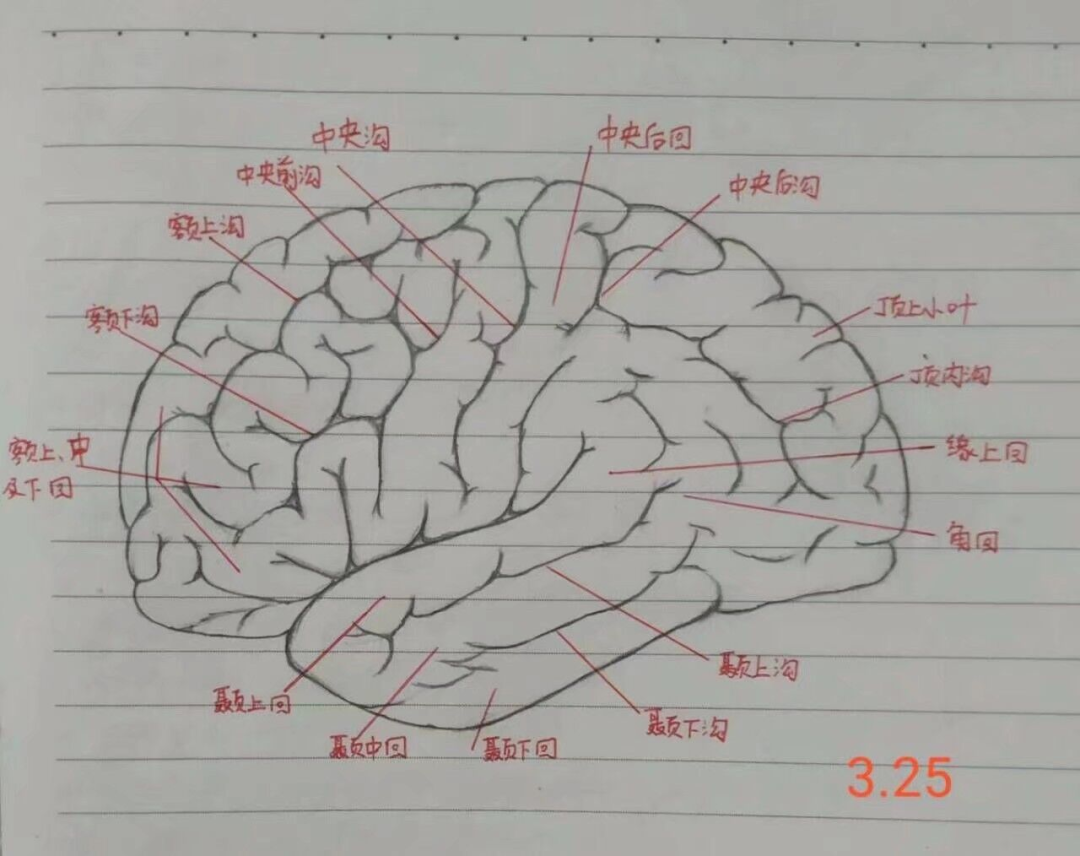 中央沟
中央后回
中央前沟
中央后沟
额上沟
额下沟
顶上小叶
顶内沟
额上、中
及下回
缘上回
角回
颞上沟
颞上回
颞下沟
颞中回
颞下回
3.25